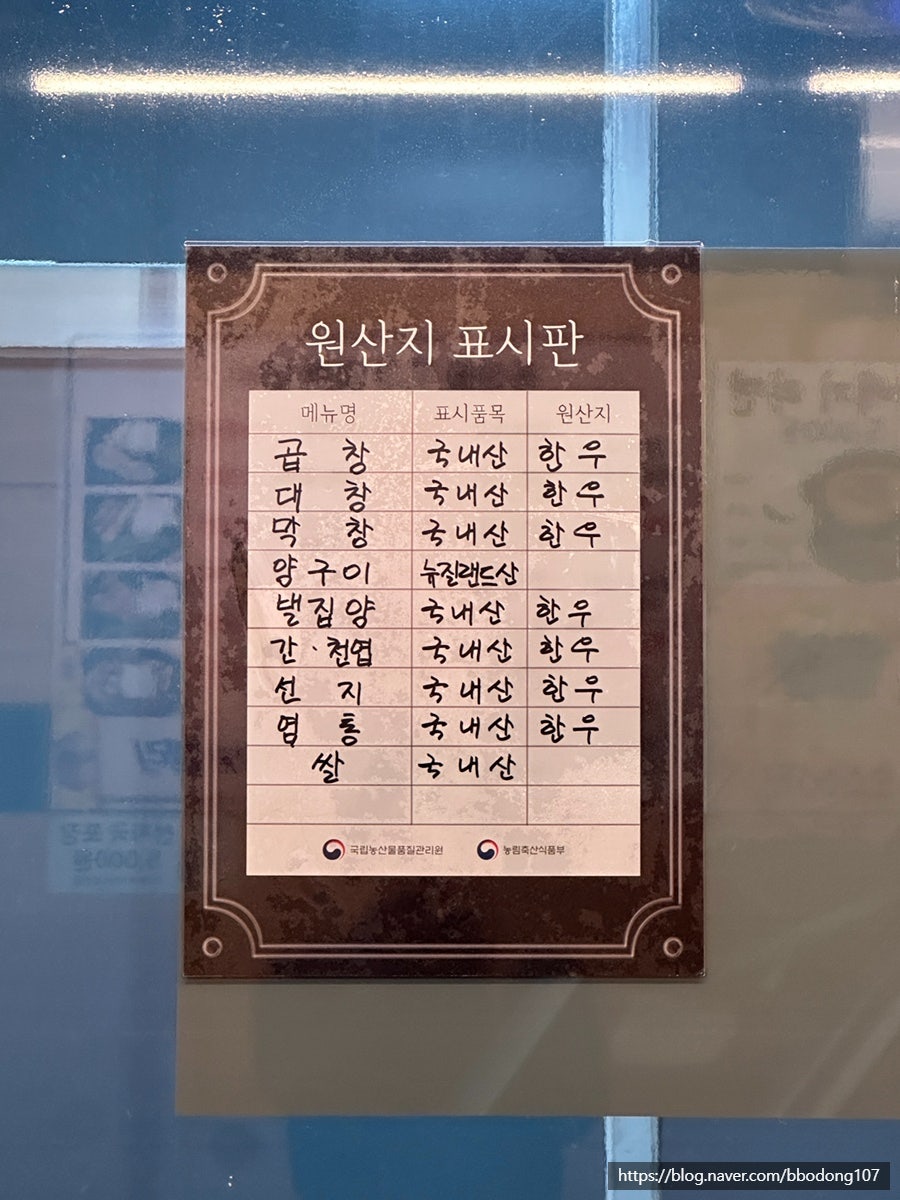 원산지 표시판
메뉴명 표시품목 원산지
곱 창 국내산 한우
대 창 국내산 한우
막 창 국내산 한우
양구이 뉴질랜드산
벌집양 국내산 한우
간·천엽 국내산 한우
선 지 국내산 한우
염 통 국내산 한우
쌀 국내산
국립농산물품질관리원 농림축산식품부
https://blog.naver.com/bbodong107